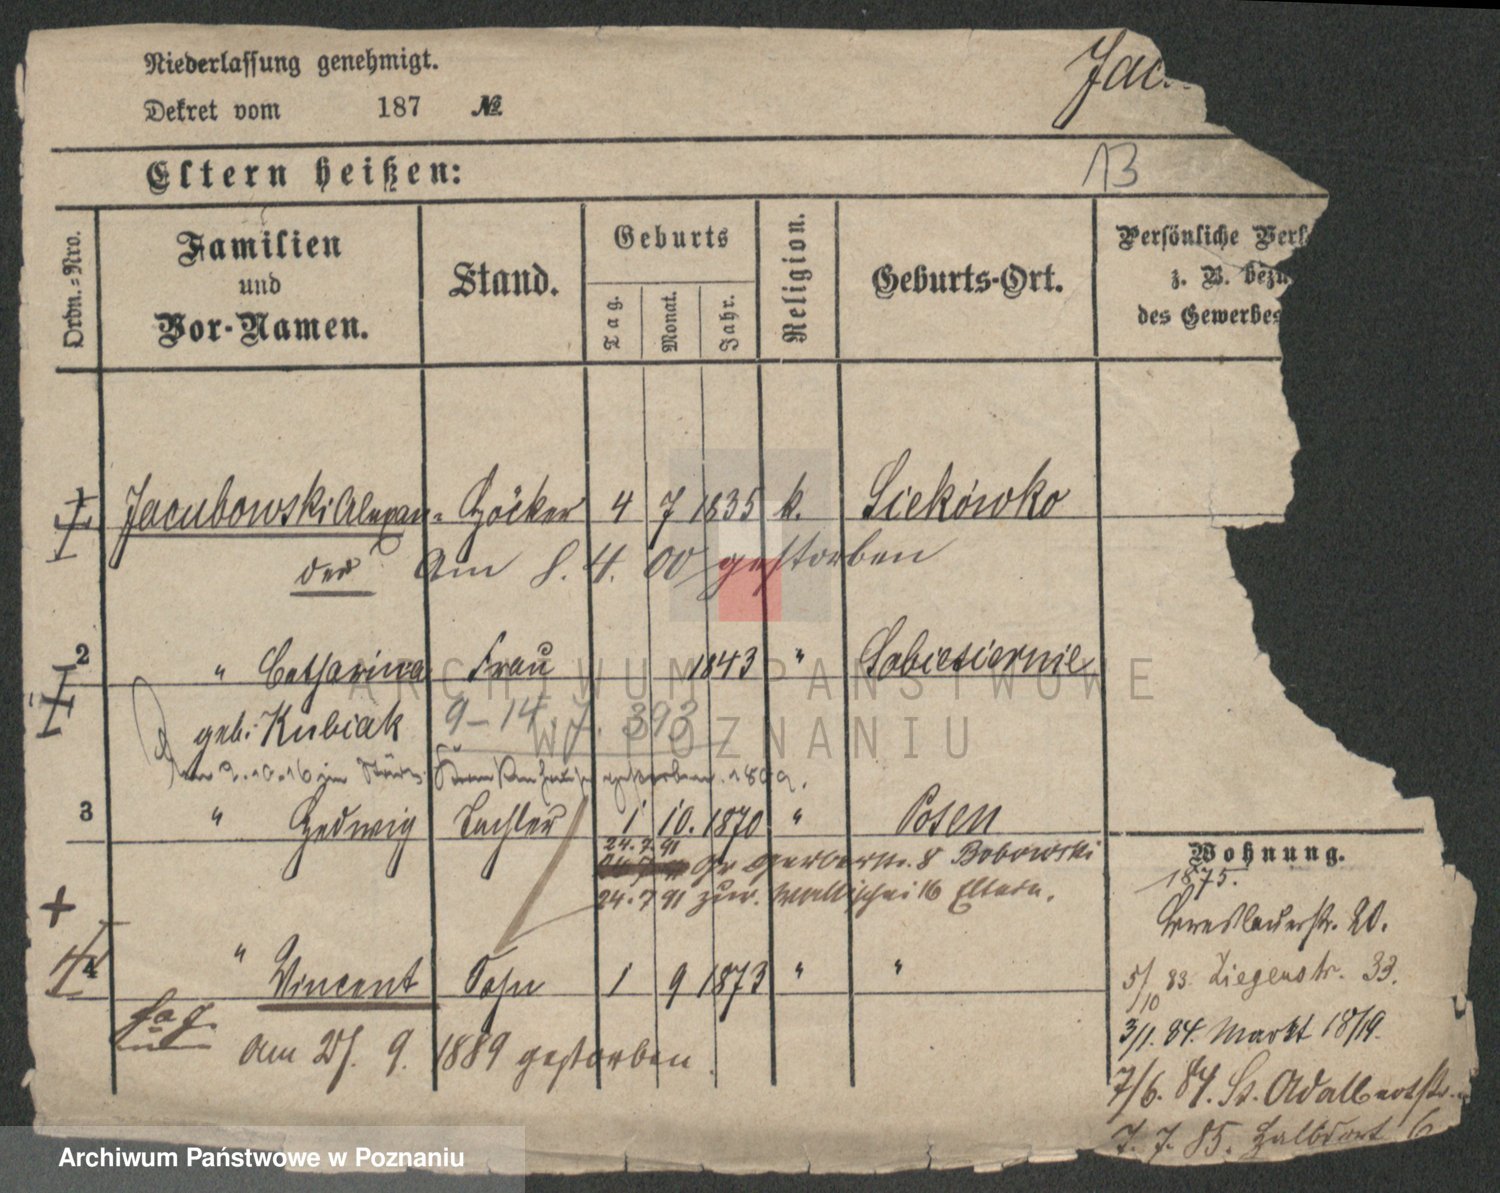 Niederlassung genehmigt.
Dekret vom 187 №
Jac
Eltern heißen:
13
Ordn.-Nro.
Familien
und
Vor-Namen.
Stand.
Geburts
Tag.
Monat.
Jahr.
Religion.
Geburts-Ort.
Persönliche
z. B.
des Gewerbes
1 Jacubowski Alexan- Höcker 4 7 1835 k. Siekówko
der Am 8. 4. 00 gestorben
2 " Catharina Frau 1843 " Sobiesiernie
geb. Kubiak 9-14.7.393
gestorben.
3 " Hedwig Tochter 1 10. 1870 " Posen
24.7.91
Gr Gerberstr. 8 Bobowski
24.7.91 zur. Wallischei 16 Eltern.
4 " Vincent Sohn 1 9 1873 " "
Am 25. 9. 1889 gestorben.
Wohnung.
1875.
Breslauerstr. 20.
5/10 83. Ziegenstr. 33.
3/1. 84. Markt 18/19.
7/6. 84. St. Adalbertstr.
7. 7. 85. Halbdorf 6
ARCHIWUM PAŃSTWOWE
W POZNANIU
Archiwum Państwowe w Poznaniu